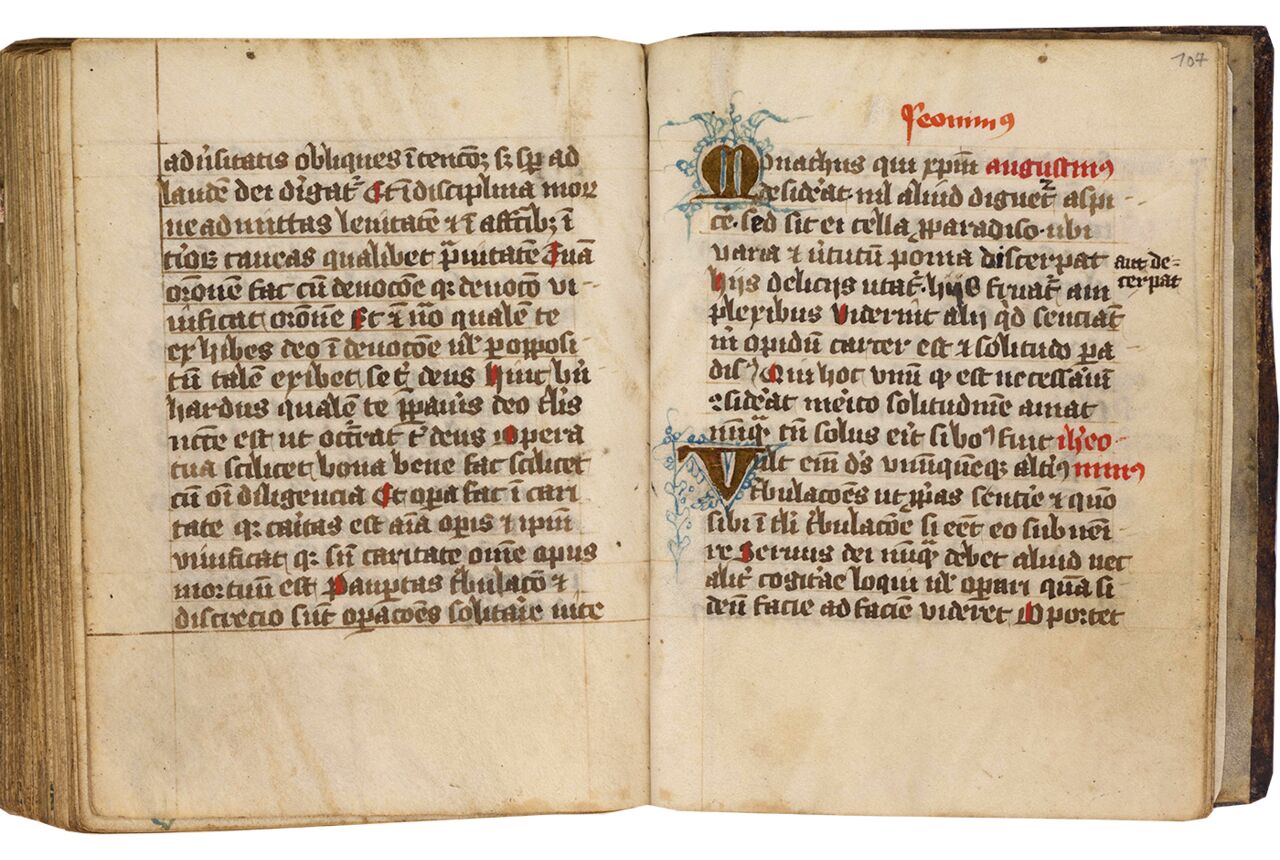 ad vſitatis obliques ītencōꝫ sꝫ sp̄ ad
laudē dei dirigat᷑ Et ī disciplina mor
ne admittas lenitatē ⁊ ī affc̄ibꝫ ī
caueas qualibet p̄uitatē Tuā
orōnē fac cū deuocōe qꝛ deuocō vi
uificat orōnē Et ī ꝟo qualē te
exhibes deo ī deuocōe ul̓ ꝑ oppoſi
tū talē exibet se t̓ deus Hinc b̓n
hardus qualē te p̄paueris deo tl̓is
necē est ut occr̄at t̓ deus Opera
tua scilicet bona bene fac scilicet
cū oī diligencia Et oꝑa fac ī cari
tate qꝛ caritas est aīa oꝑis ⁊ ip̄m
viuificat qꝛ sn̄ caritate omē opus
mortuū est Pauꝑtas t̓bulacō ⁊
discrecio sūt oꝑacōes solitarie vite
107
Jeronimꝯ
Monachus qui xp̄m augustinꝯ
desid̓at nil aliud diguet᷑ aspi
ce. sed sit ei cella ꝓ paradiso. ubi
varia ⁊ v̓tutū poma discerpat
aut de=
cerpat
hijs delicijs utat᷑. hijs fruat᷑ am
plexibus Viderint alij qd̓ senciāt
m̄ opidū carcer est ⁊ solitudo pa
disꝯ Qui hoc vnū qd̓ est necessariū
desid̓at merito solitudinē amat
nūqᷓ tn̄ solus erit si bonꝯ fuit ihero
Vult em̄ dn̄s vnūquēqꝫ altiꝯ nimꝯ
t̓bulacōes ut ꝓprias sentire ⁊ quō
sibi ī tl̓i t̓bulacōe si eēt eo subueni
re Seruus dei nūqᷓ debet aliud nec
alit̓ cogitare loqui ul̓ oꝑari quā si
deū facie ad faciē videret Oportet